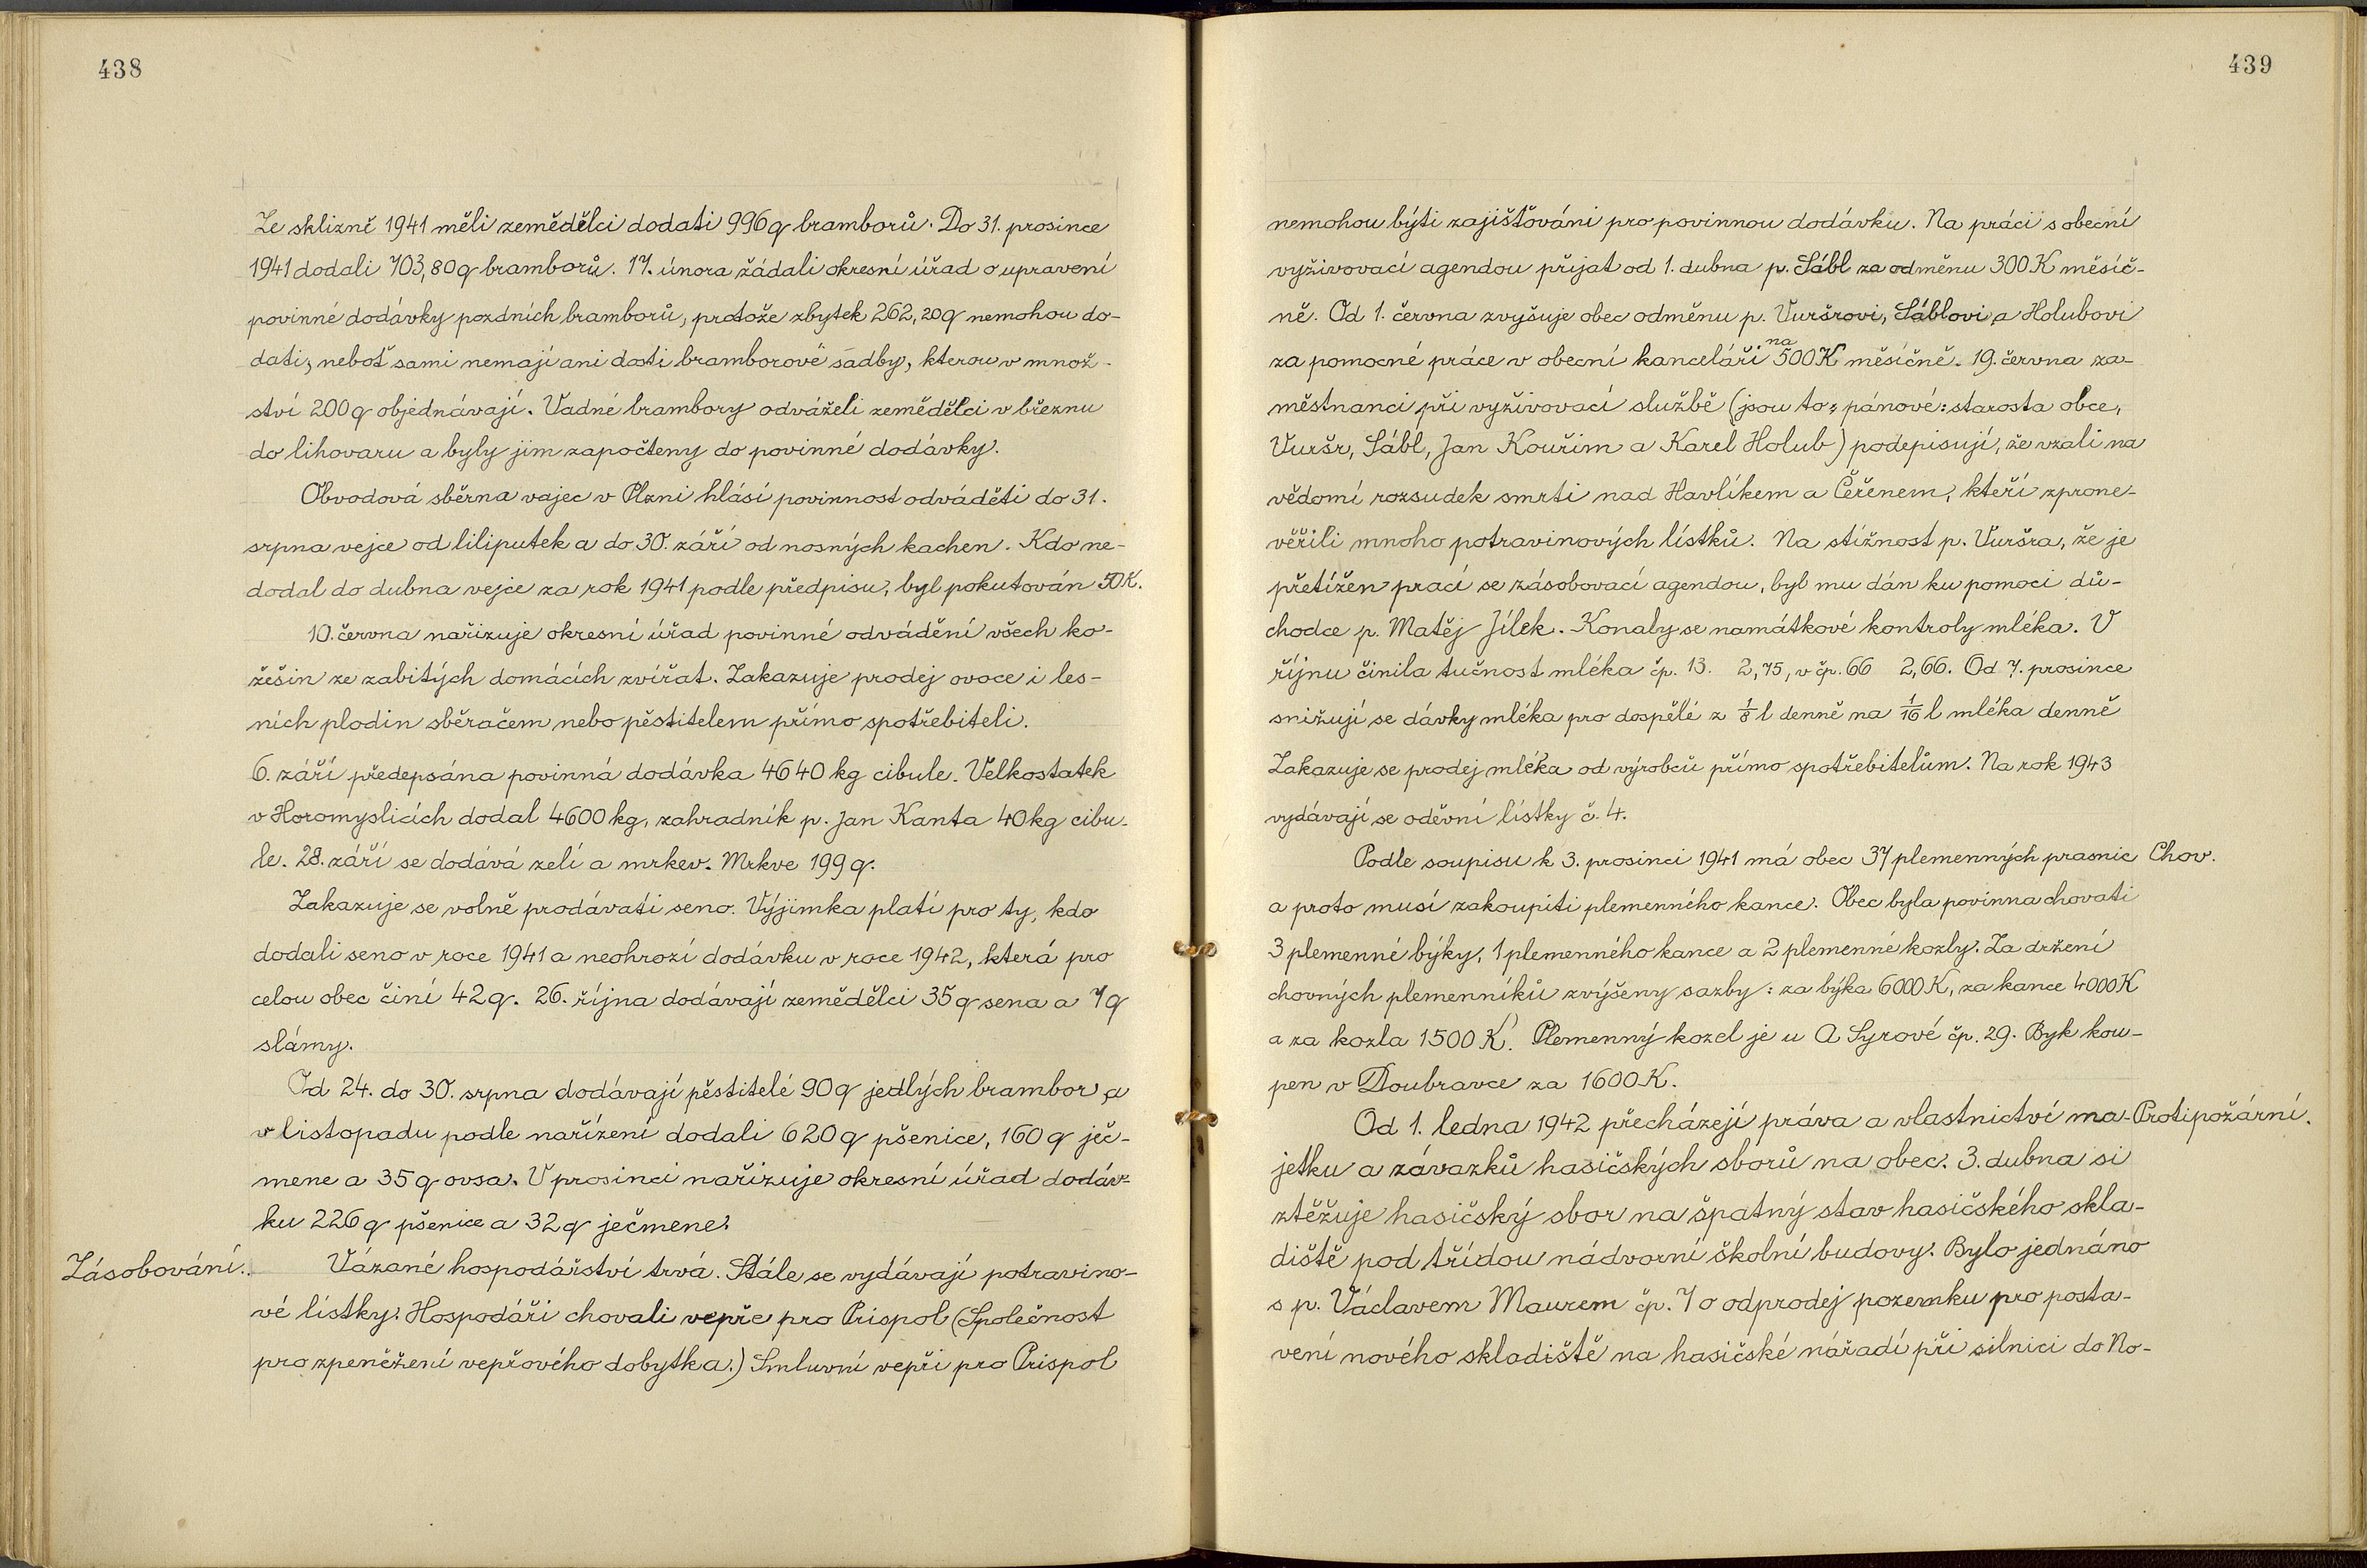 438
Ze sklizně 1941 měli zemědělci dodati 996 q bramborů. Do 31. prosince
1941 dodali 703,80 q bramborů. 17. února žádali okresní úřad o upravení
povinné dodávky pozdních bramborů, protože zbytek 262,20 q nemohou do-
dati, neboť sami nemají ani dosti bramborové sadby, kterou v množ-
ství 200 q objednávají. Vadné brambory odváželi zemědělci v březnu
do lihovaru a byly jim započteny do povinné dodávky.
Obvodová sběrna vajec v Plzni hlásí povinnost odváděti do 31.
srpna vejce od liliputek a do 30. září od nosných kachen. Kdo ne-
dodal do dubna vejce za rok 1941 podle předpisu, byl pokutován 50 K.
10. června nařizuje okresní úřad povinné odvádění všech ko-
žešin ze zabitých domácích zvířat. Zakazuje prodej ovoce i les-
ních plodin sběračem nebo pěstitelem přímo spotřebiteli.
6. září předepsána povinná dodávka 4640 kg cibule. Velkostatek
v Horomyslicích dodal 4600 kg, zahradník p. Jan Kanta 40 kg cibu-
le. 28. září se dodává zelí a mrkev. Mrkve 199 q.
Zakazuje se volně prodávati seno. Výjimka platí pro ty, kdo
dodali seno v roce 1941 a neohrozí dodávku v roce 1942, která pro
celou obec činí 42 q. 26. října dodávají zemědělci 35 q sena a 7 q
slámy.
Od 24. do 30. srpna dodávají pěstitelé 90 q jedlých brambor a
v listopadu podle nařízení dodali 620 q pšenice, 160 q ječ-
mene a 35 q ovsa. V prosinci nařizuje okresní úřad dodáv-
ku 226 q pšenice a 32 q ječmene.
Zásobování. Vázané hospodářství trvá. Stále se vydávají potravino-
vé lístky. Hospodáři chovali vepře pro Prispol (Společnost
pro zpeněžení vepřového dobytka.) Smluvní vepři pro Prispol
439
nemohou býti zajišťováni pro povinnou dodávku. Na práci s obecní
vyživovací agendou přijat od 1. dubna p. Sábl za odměnu 300 K měsíč-
ně. Od 1. června zvyšuje obec odměnu p. Vuršrovi, Sáblovi a Holubovi
za pomocné práce v obecní kanceláři na 500 K měsíčně. 19. června za-
městnanci při vyživovací službě (jsou to: pánové: starosta obce,
Vuršr, Sábl, Jan Kouřim a Karel Holub) podepisují, že vzali na
vědomí rozsudek smrti nad Havlíkem a Čeřenem, kteří zprone-
věřili mnoho potravinových lístků. Na stížnost p. Vuršra, že je
přetížen prací se zásobovací agendou, byl mu dán ku pomoci dů-
chodce p. Matěj Jílek. Konaly se namátkové kontroly mléka. V
říjnu činila tučnost mléka čp. 13. 2,75, v čp. 66 2,66. Od 7. prosince
snižují se dávky mléka pro dospělé z 1/8 l denně na 1/16 l mléka denně
Zakazuje se prodej mléka od výrobců přímo spotřebitelům. Na rok 1943
vydávají se oděvní lístky č. 4.
Podle soupisu k 3. prosinci 1941 má obec 37 plemenných prasnic Chov.
a proto musí zakoupiti plemenného kance. Obec byla povinna chovati
3 plemenné býky, 1 plemenného kance a 2 plemenné kozly. Za držení
chovných plemenníků zvýšeny sazby: za býka 6000 K, za kance 4000 K
a za kozla 1500 K. Plemenný kozel je u A Syrové čp. 29. Byk kou-
pen v Doubravce za 1600 K.
Od 1. ledna 1942 přecházejí práva a vlastnictví ma- Protipožární.
jetku a závazků hasičských sborů na obec. 3. dubna si
ztěžuje hasičský sbor na špatný stav hasičského skla-
diště pod třídou nádvorní školní budovy. Bylo jednáno
s p. Václavem Maurem čp. 7 o odprodej pozemku pro posta-
vení nového skladiště na hasičské nářadí při silnici do No-